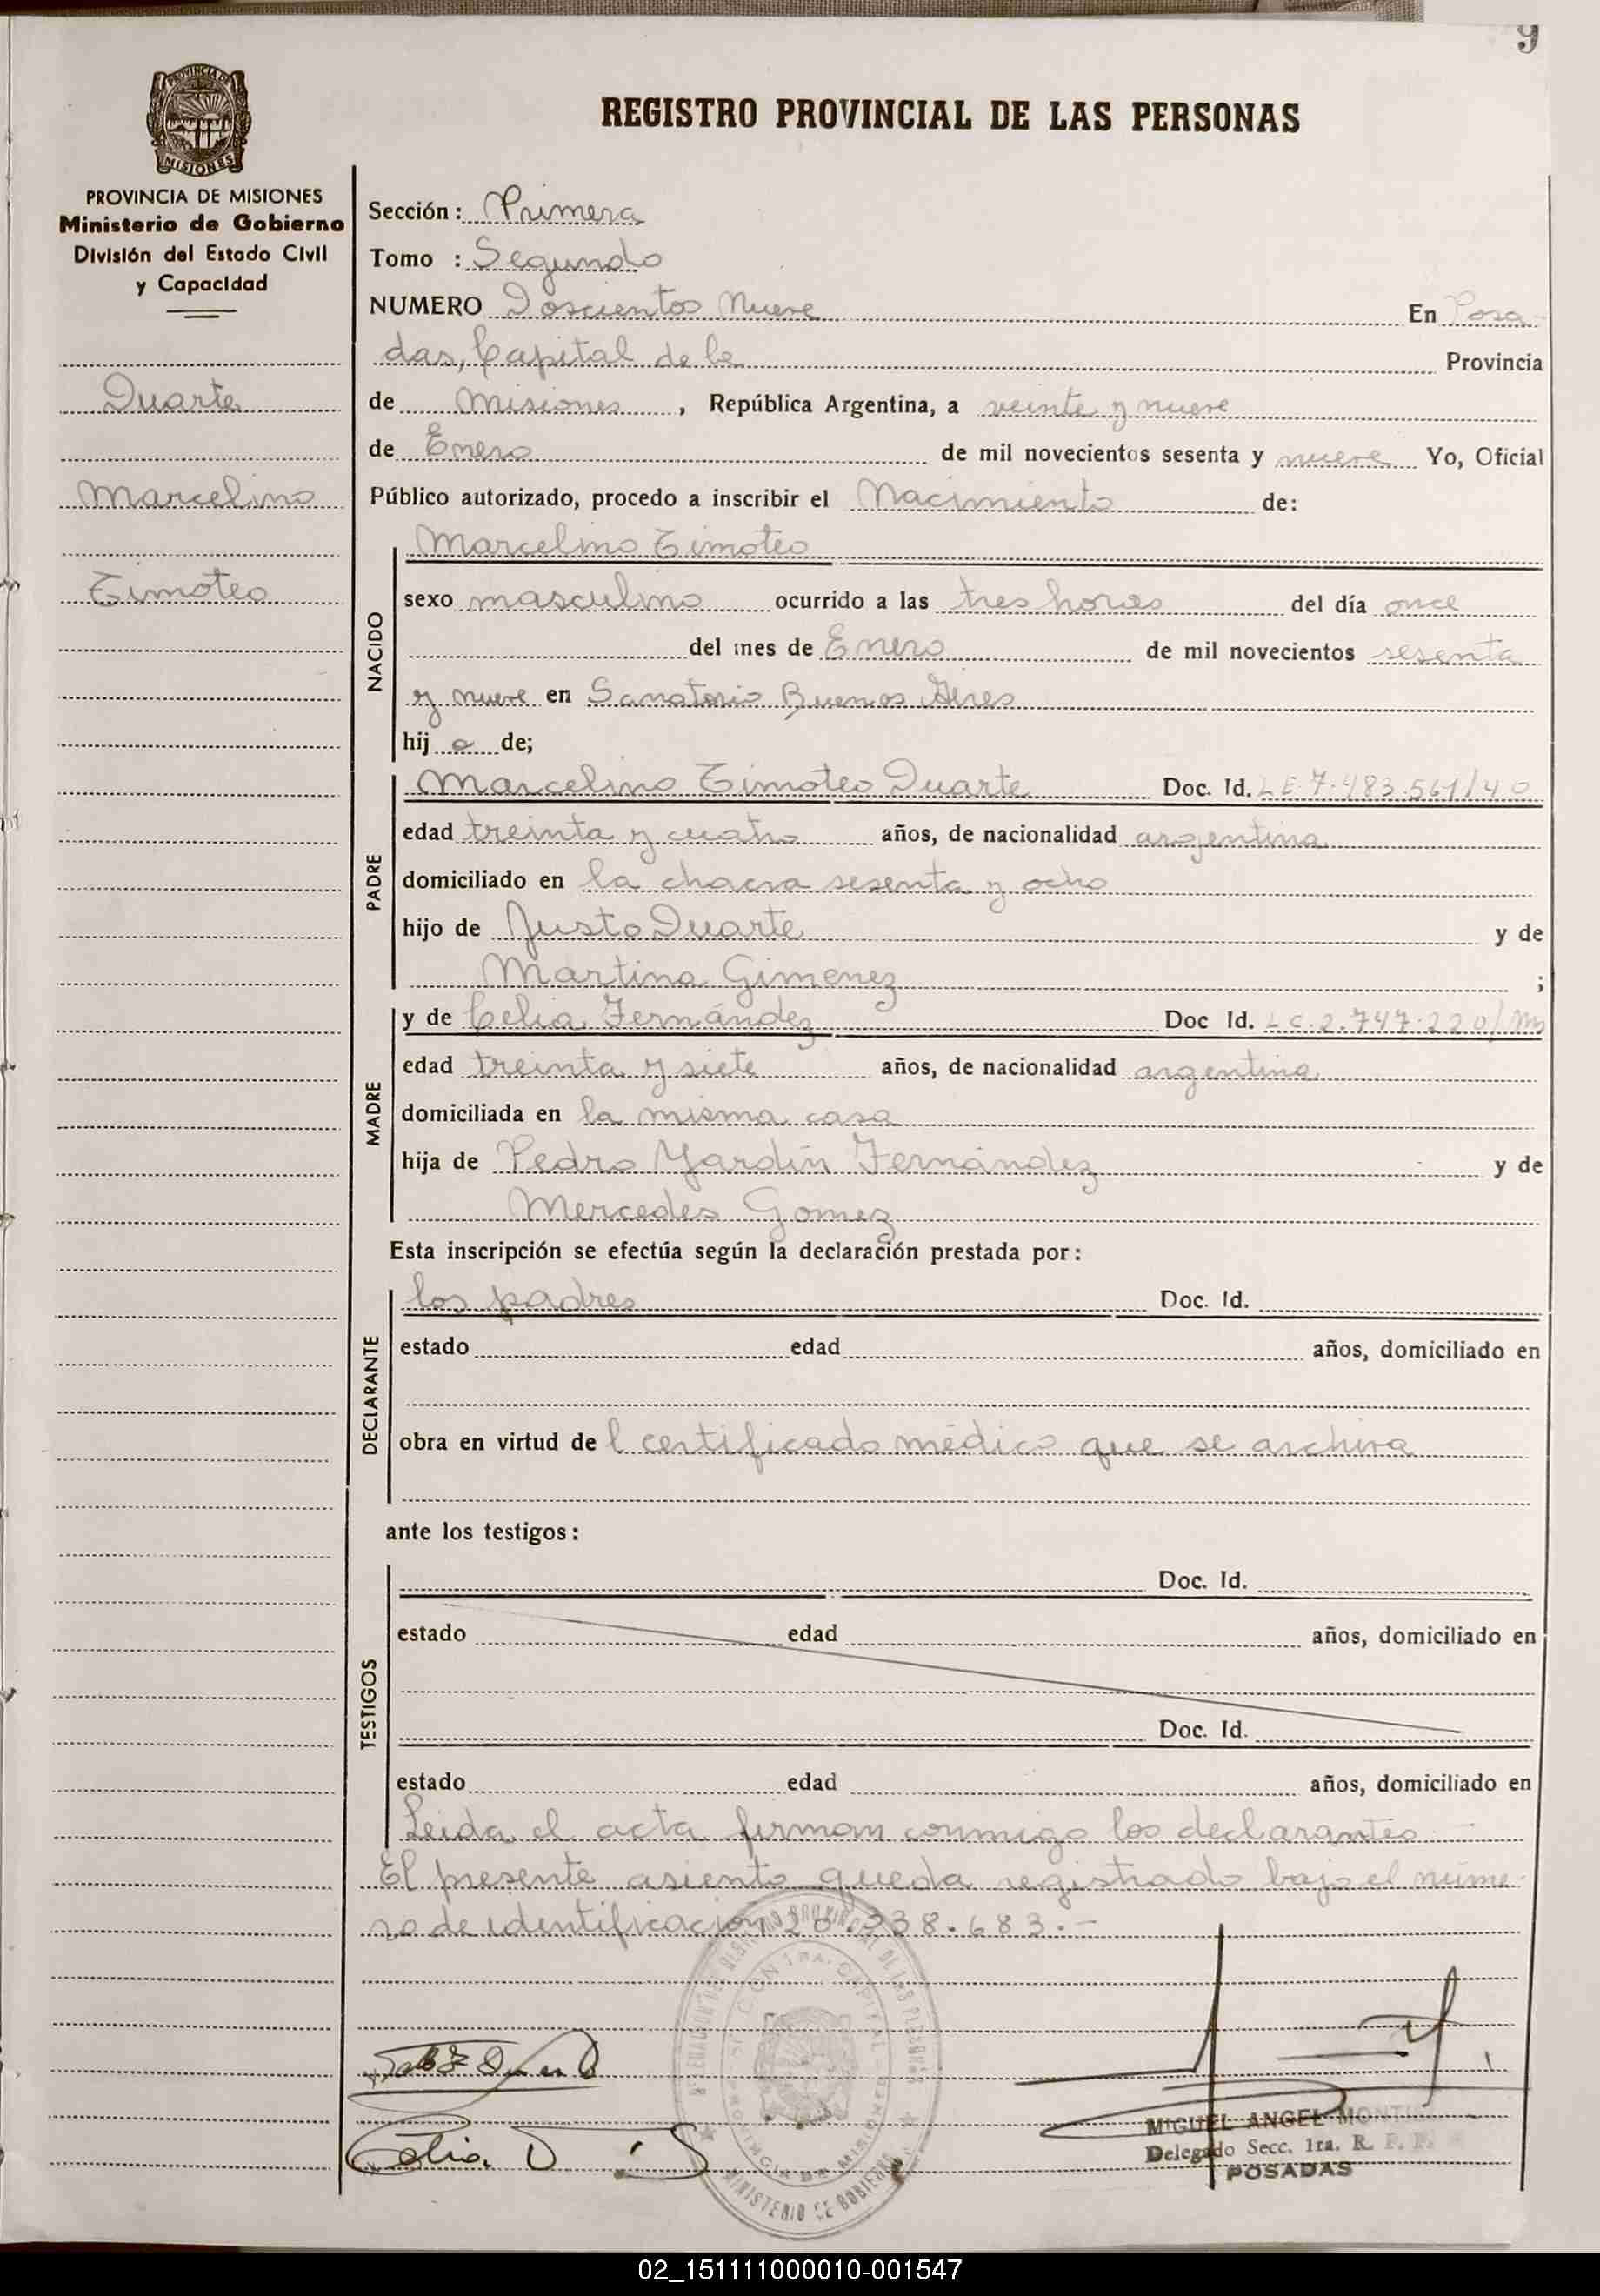 9
REGISTRO PROVINCIAL DE LAS PERSONAS
PROVINCIA DE MISIONES
MISIONES
PROVINCIA DE MISIONES
Ministerio de Gobierno
División del Estado Civil
y Capacidad
Duarte
Marcelino
Timoteo
Sección: Primera
Tomo : Segundo
NUMERO Doscientos Nueve En Posa-
das, Capital de la Provincia
de Misiones, República Argentina, a veinte y nueve
de Enero de mil novecientos sesenta y nueve Yo, Oficial
Público autorizado, procedo a inscribir el Nacimiento de:
NACIDO
Marcelino Timoteo
sexo masculino ocurrido a las tres horas del día once
del mes de Enero de mil novecientos sesenta
y nueve en Sanatorio Buenos Aires
hij o de;
PADRE
Marcelino Timoteo Duarte Doc. Id. LE 7.483.561/40
edad treinta y cuatro años, de nacionalidad argentina
domiciliado en la chacra sesenta y ocho
hijo de Justo Duarte y de
Martina Gimenez ;
MADRE
y de Celia Fernández Doc Id. LC.2.747.220/
edad treinta y siete años, de nacionalidad argentina
domiciliada en la misma casa
hija de Pedro Yardín Fernández y de
Mercedes Gomez
Esta inscripción se efectúa según la declaración prestada por:
DECLARANTE
los padres Doc. Id.
estado edad años, domiciliado en
obra en virtud del certificado médico que se archiva
ante los testigos:
TESTIGOS
Doc. Id.
estado edad años, domiciliado en
Doc. Id.
estado edad años, domiciliado en
Leida el acta firman conmigo los declarantes
El presente asiento queda registrado bajo el núme-
ro de identificación 20.338.683.-
Celia
MIGUEL ANGEL
Delegado Secc. 1ra. R. P. P.
POSADAS
MINISTERIO DE GOBIERNO
02_151111000010-001547